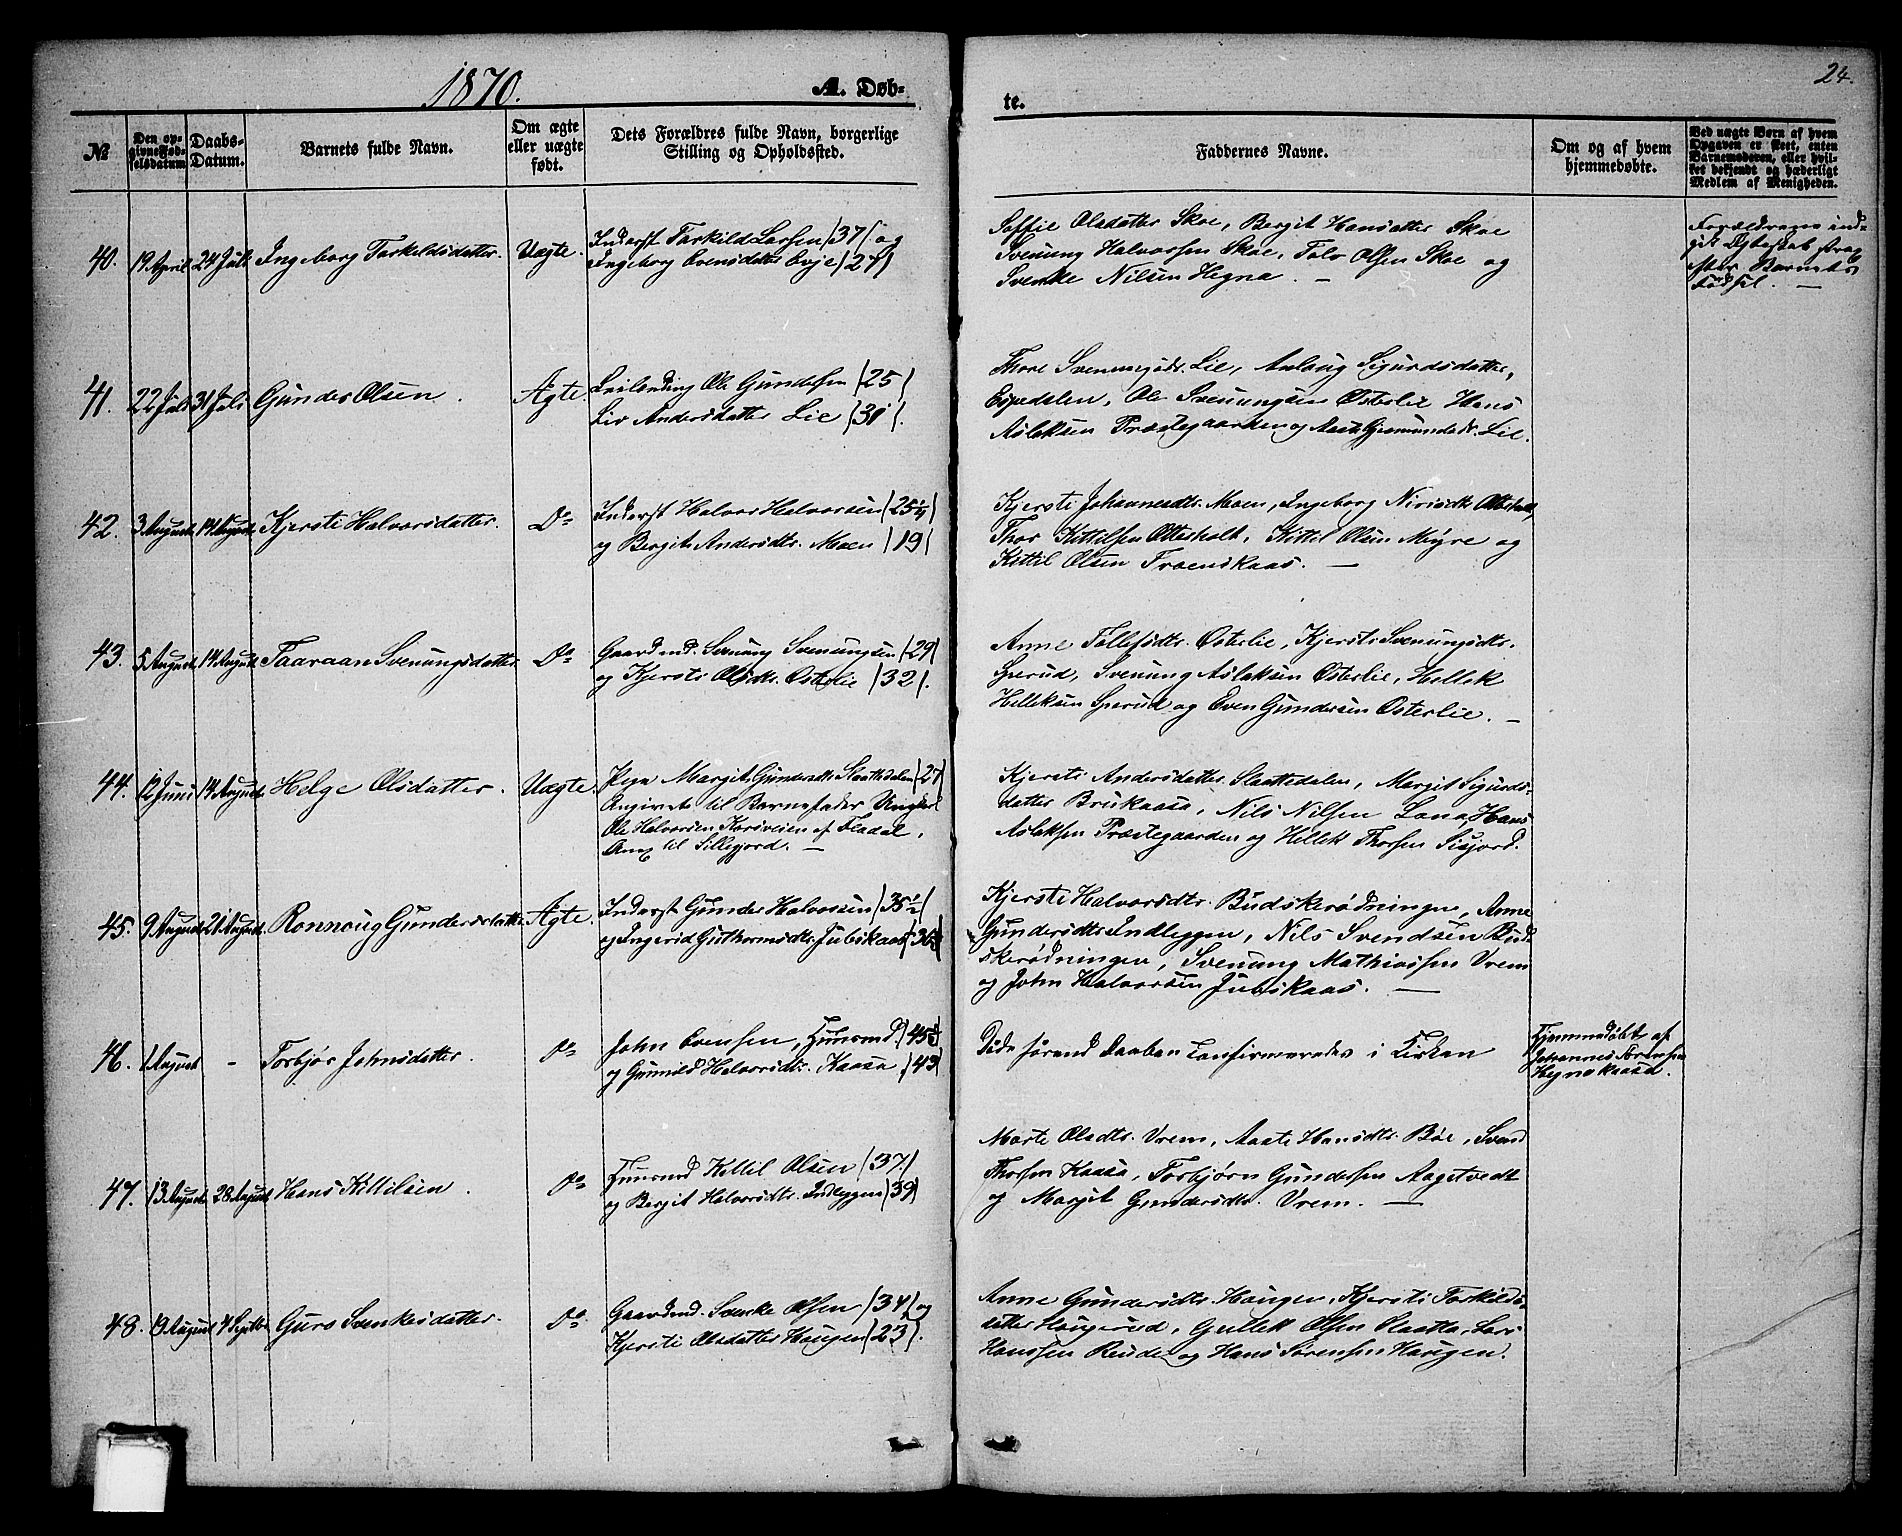 1870.
A. Døb-
te.
24.
№
Den op-
givne Fød-
selsdatum
Daabs-
Datum.
Barnets fulde Navn.
Om ægte
eller uægte
født.
Dets Forældres fulde Navn, borgerlige
Stilling og Opholdssted.
Faddernes Navne.
Om og af hvem
hjemmedøbte.
Ved uægte Børn af hvem
Opgaven er skeet, enten
Barnemoderen, eller hvil-
ket bekjendt og hæderligt
Medlem af Menigheden.
40. 19 April 24 Juli Ingeborg Tarkildsdatter. Uægte.
Inderst Tarkild Larsen (37) og
Ingeborg Evensdatter Evje (27)
Soffie Olsdatter Skoe, Bergit Hansdatter Skoe
Svenung Halvorsen Skoe, Tolv Olsen Skoe og
Svenke Nilsen Hegna. —
Forældrene ind-
gik Egteskab strax
efter Barnets
Fødsel. —
41. 22 Juli 31 Juli Gunder Olsen. Ægte.
Leilending Ole Gundersen (25)
Liv Andersdatter Lie (31).
Thore Svenungsdr. Lie, Aslaug Sigurdsdatter,
Espedalen, Ole Svenungsen Østerlie Hans
Aslaksen Præstegaarden og Aaste Gjermundsdr. Lie.
42. 3 August 14 August Kjersti Halvorsdatter. Do
Inderst Halvor Halvorsen (25 1/4)
og Bergit Andersdtr. Moen (19)
Kjersti Johannesdtr. Moen, Ingeborg Nirisdtr Otterholt,
Thor Kittilsen Otterholt, Kittil Olsen Myre og
Kittil Olsen Froenskaas. —
43. 5 August 14 August Taaraan Svenungsdatter Do
Gaardmd. Svenung Svenungsen (29)
og Kjersti Olsdtr. Østerlie (32).
Anne Tollefsdtr. Østerlie, Kjersti Svenungsdtr.
Sperud, Svenung Aslaksen Østerlie, Hellek
Helleksen Sperud og Even Gundersen Østerlie. —
44. 12 Juni 14 August Helge Olsdatter. Uægte.
Pige Margit Gundersdtr. Slaattedalen (27)
Angivet til Barnefader Ungkarl
Ole Halvorsen Korsveien af Fladal,
Anx til Sillegjord. —
Kjersti Andersdatter Slaattedalen, Margit Sigurds-
datter Brukaasa, Nils Nilsen Lona, Hans
Aslaksen Præstegaarden og Hellek Thorsen Sisjord.
45. 9 August 21 August Ronnoug Gundersdatter Ægte.
Inderst Gunder Halvorsen (35 1/2)
og Ingerid Guthormsdtr. Jubskaas (36 1/2)
Kjersti Halvorsdtr. Budskerødningen, Anne
Gundersdtr. Indleggen, Nils Svendsen Bud-
skerødningen, Svenung Mathiassen Vrem
og John Halvorsen Jubskaas. —
46. 1 August - Torbjør Johnsdatter. Do
John Evensen, Huusmd. (45 1/2)
og Gunild Halvorsdtr. Kaasa (43)
Døde førend Daaben confirmeredes i Kirken
Hjemmedøbt af
Johannes Sørensen
Hegnakaasa.
47. 13 August 28 August Hans Kittilsen. Do
Huusmd Kittil Olsen (37)
og Bergit Halvorsdtr. Indleggen (39)
Marte Olsdtr. Vrem, Aaste Hansdtr. Bøe, Svend
Thorsen Kaasa, Torbjørn Gundersen Aagetvedt
og Margit Gundersdtr. Vrem. —
48. 19 August 4 Septbr. Guro Svenkesdatter. Do
Gaardmd. Svenke Olsen (34) og
Kjersti Olsdatter Haugen (23).
Anne Gundersdtr. Haugen, Kjersti Torkilds-
datter Haugerud, Gullek Olsen Plaatta, Lars
Hanssen Reude og Hans Sørensen Haugen.